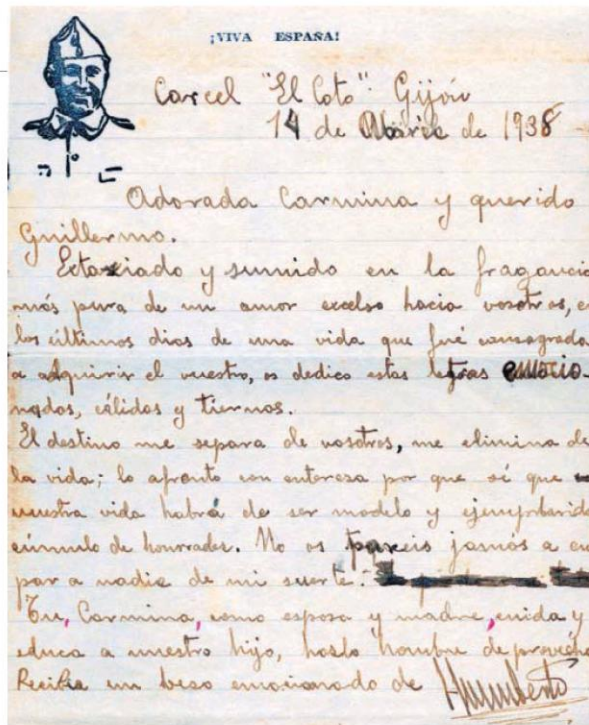 ¡VIVA ESPAÑA!
Carcel "El Coto" Gijón
14 de Abril de 1938
Adorada Carmina y querido
Guillermo.
Extasiado y sumido en la fragancia
más pura de un amor excelso hacia vosotros, e
los últimos dias de una vida que fué consagrada
a adquirir el vuestro, os dedico estas letras emocio-
nadas, cálidas y tiernas.
El destino me separa de vosotros, me elimina de
la vida; lo afronto con entereza por que sé que
vuestra vida habrá de ser modelo y ejemplarida
cúmulo de honradez. No os pareis jamás a cu
par a nadie de mi suerte.
Tu, Carmina, como esposa y madre, cuida y
educa a nuestro hijo, hasta hombre de provecho
Recibe un beso emocionado de Humberto